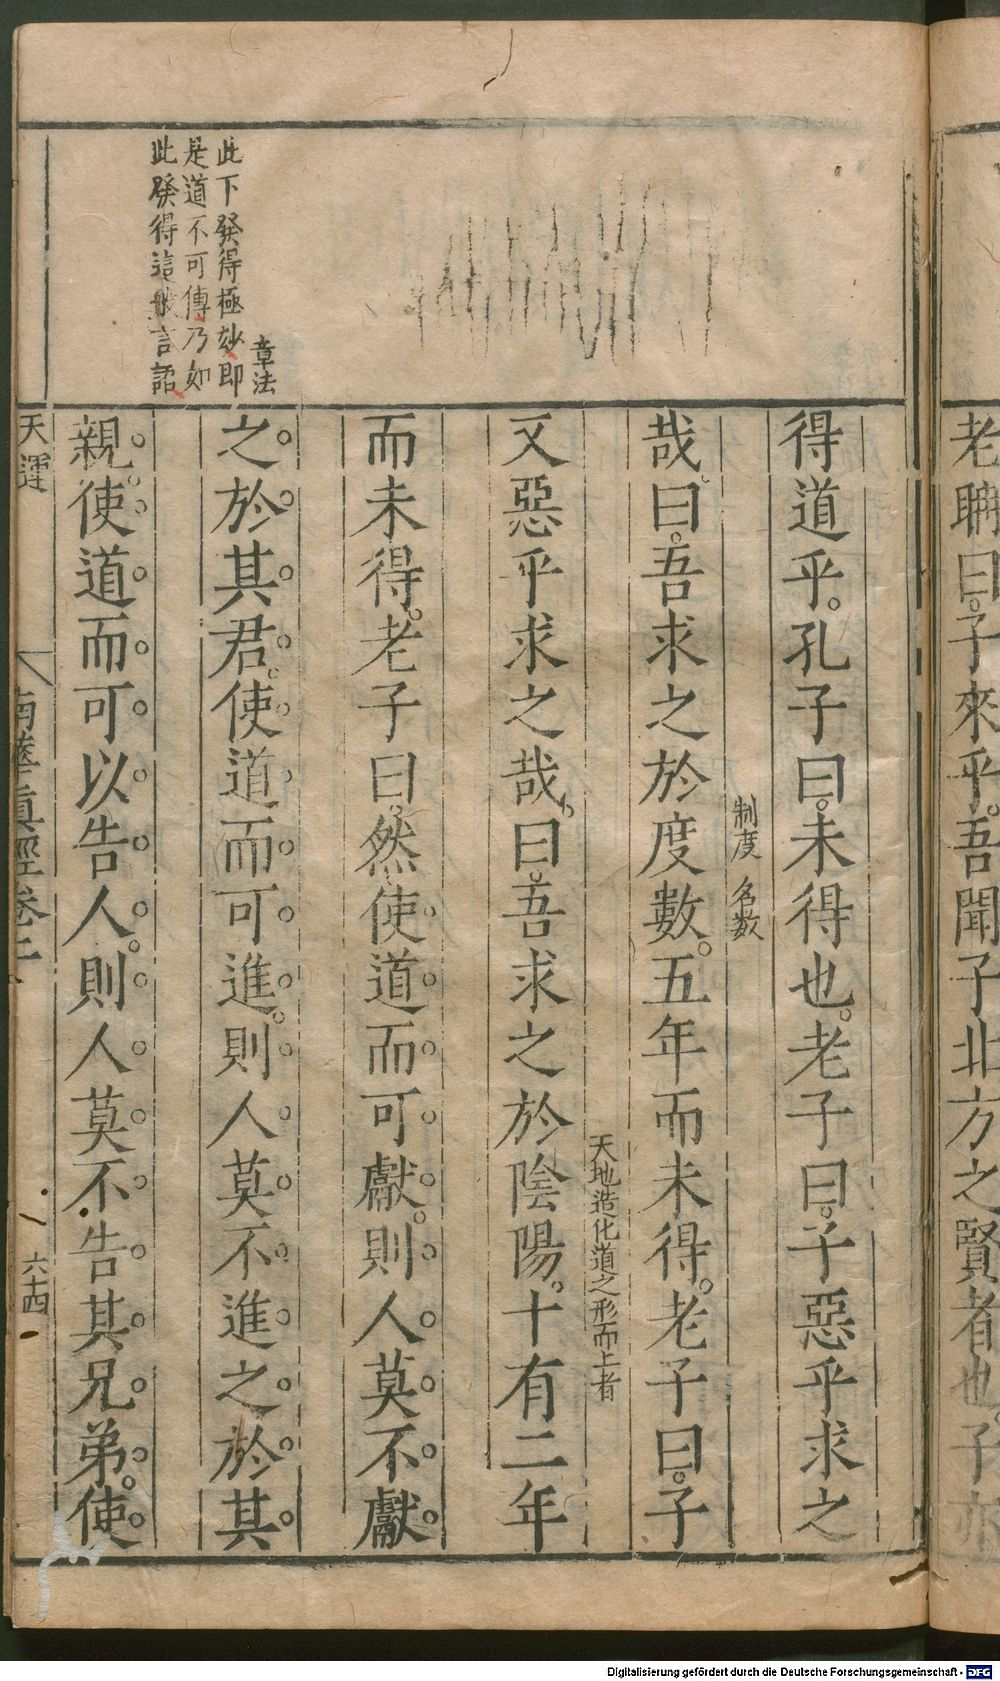 老聃曰子來乎吾聞子北方之賢者也子亦
得道乎孔子曰未得也老子曰子惡乎求之
制度 名數
哉曰吾求之於度數五年而未得老子曰子
天地造化道之形而上者
又惡乎求之哉曰吾求之於陰陽十有二年
而未得老子曰然使道而可獻則人莫不獻
章法
此下發得極妙即
是道不可傳乃如
此發得這般言語
之於其君使道而可進則人莫不進之於其
親使道而可以告人則人莫不告其兄弟使
天運
南華真經卷
六十四
Digitalisierung gefördert durch die Deutsche Forschungsgemeinschaft - DFG